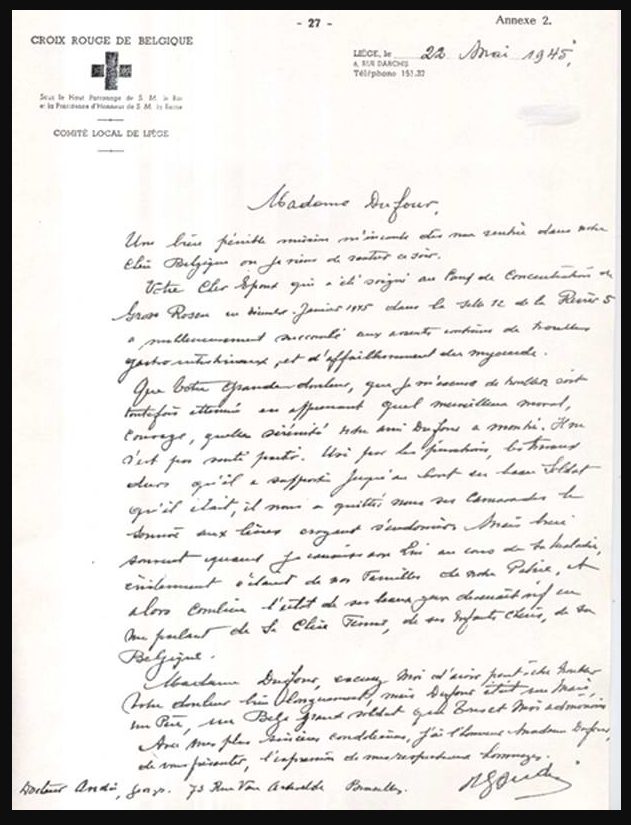 - 27 -
Annexe 2.
CROIX ROUGE DE BELGIQUE
Sous le Haut Patronage de S. M. le Roi
et la Présidence d'Honneur de S. M. la Reine
COMITÉ LOCAL DE LIÉGE
LIÉGE, le 22 Mai 1945
6, RUE DARCHIS
Téléphone 151.32
Madame Dufour,
Une bien pénible mission m'incombe dès ma rentrée dans notre
Chère Belgique où je viens de rentrer ce soir.
Votre Cher Epoux qui a été soigné au Camp de Concentration de
Gross Rosen en Janvier 1945 dans la 12 de la 5
a malheureusement succombé aux de troubles
gastro intestinaux, et d'affaiblissement du myocarde.
Que Votre Grande douleur, que je m'excuse de troubler soit
toutefois atténuée en apprenant quel merveilleux moral,
courage, quelle sérénité notre ami Dufour a montré. Il ne
s'est pas senti partir. Usé par les privations, les travaux
durs qu'il a supportés jusqu'au bout en beau Soldat
qu'il était, il nous a quittés nous ses camarades le
sourire aux lèvres croyant s'endormir. Mais bien
souvent quand je causais avec Lui au cours de sa maladie,
évidemment c'était de nos Familles de notre Patrie, et
alors combien l'éclat de ses beaux yeux devenait vif en
me parlant de Sa Chère Femme, de ses Enfants Chéris, de sa
Belgique.
Madame Dufour, excusez Moi d'avoir peut-être troublé
Votre douleur bien longuement, mais Dufour était un Mari,
un Père, un Belge grand soldat que Tous et Moi admirions
Avec mes plus sincères condoléances, j'ai l'honneur Madame Dufour,
de vous présenter, l'expression de mes respectueux hommages.
Docteur André, 73 Rue Van Artevelde Bruxelles.